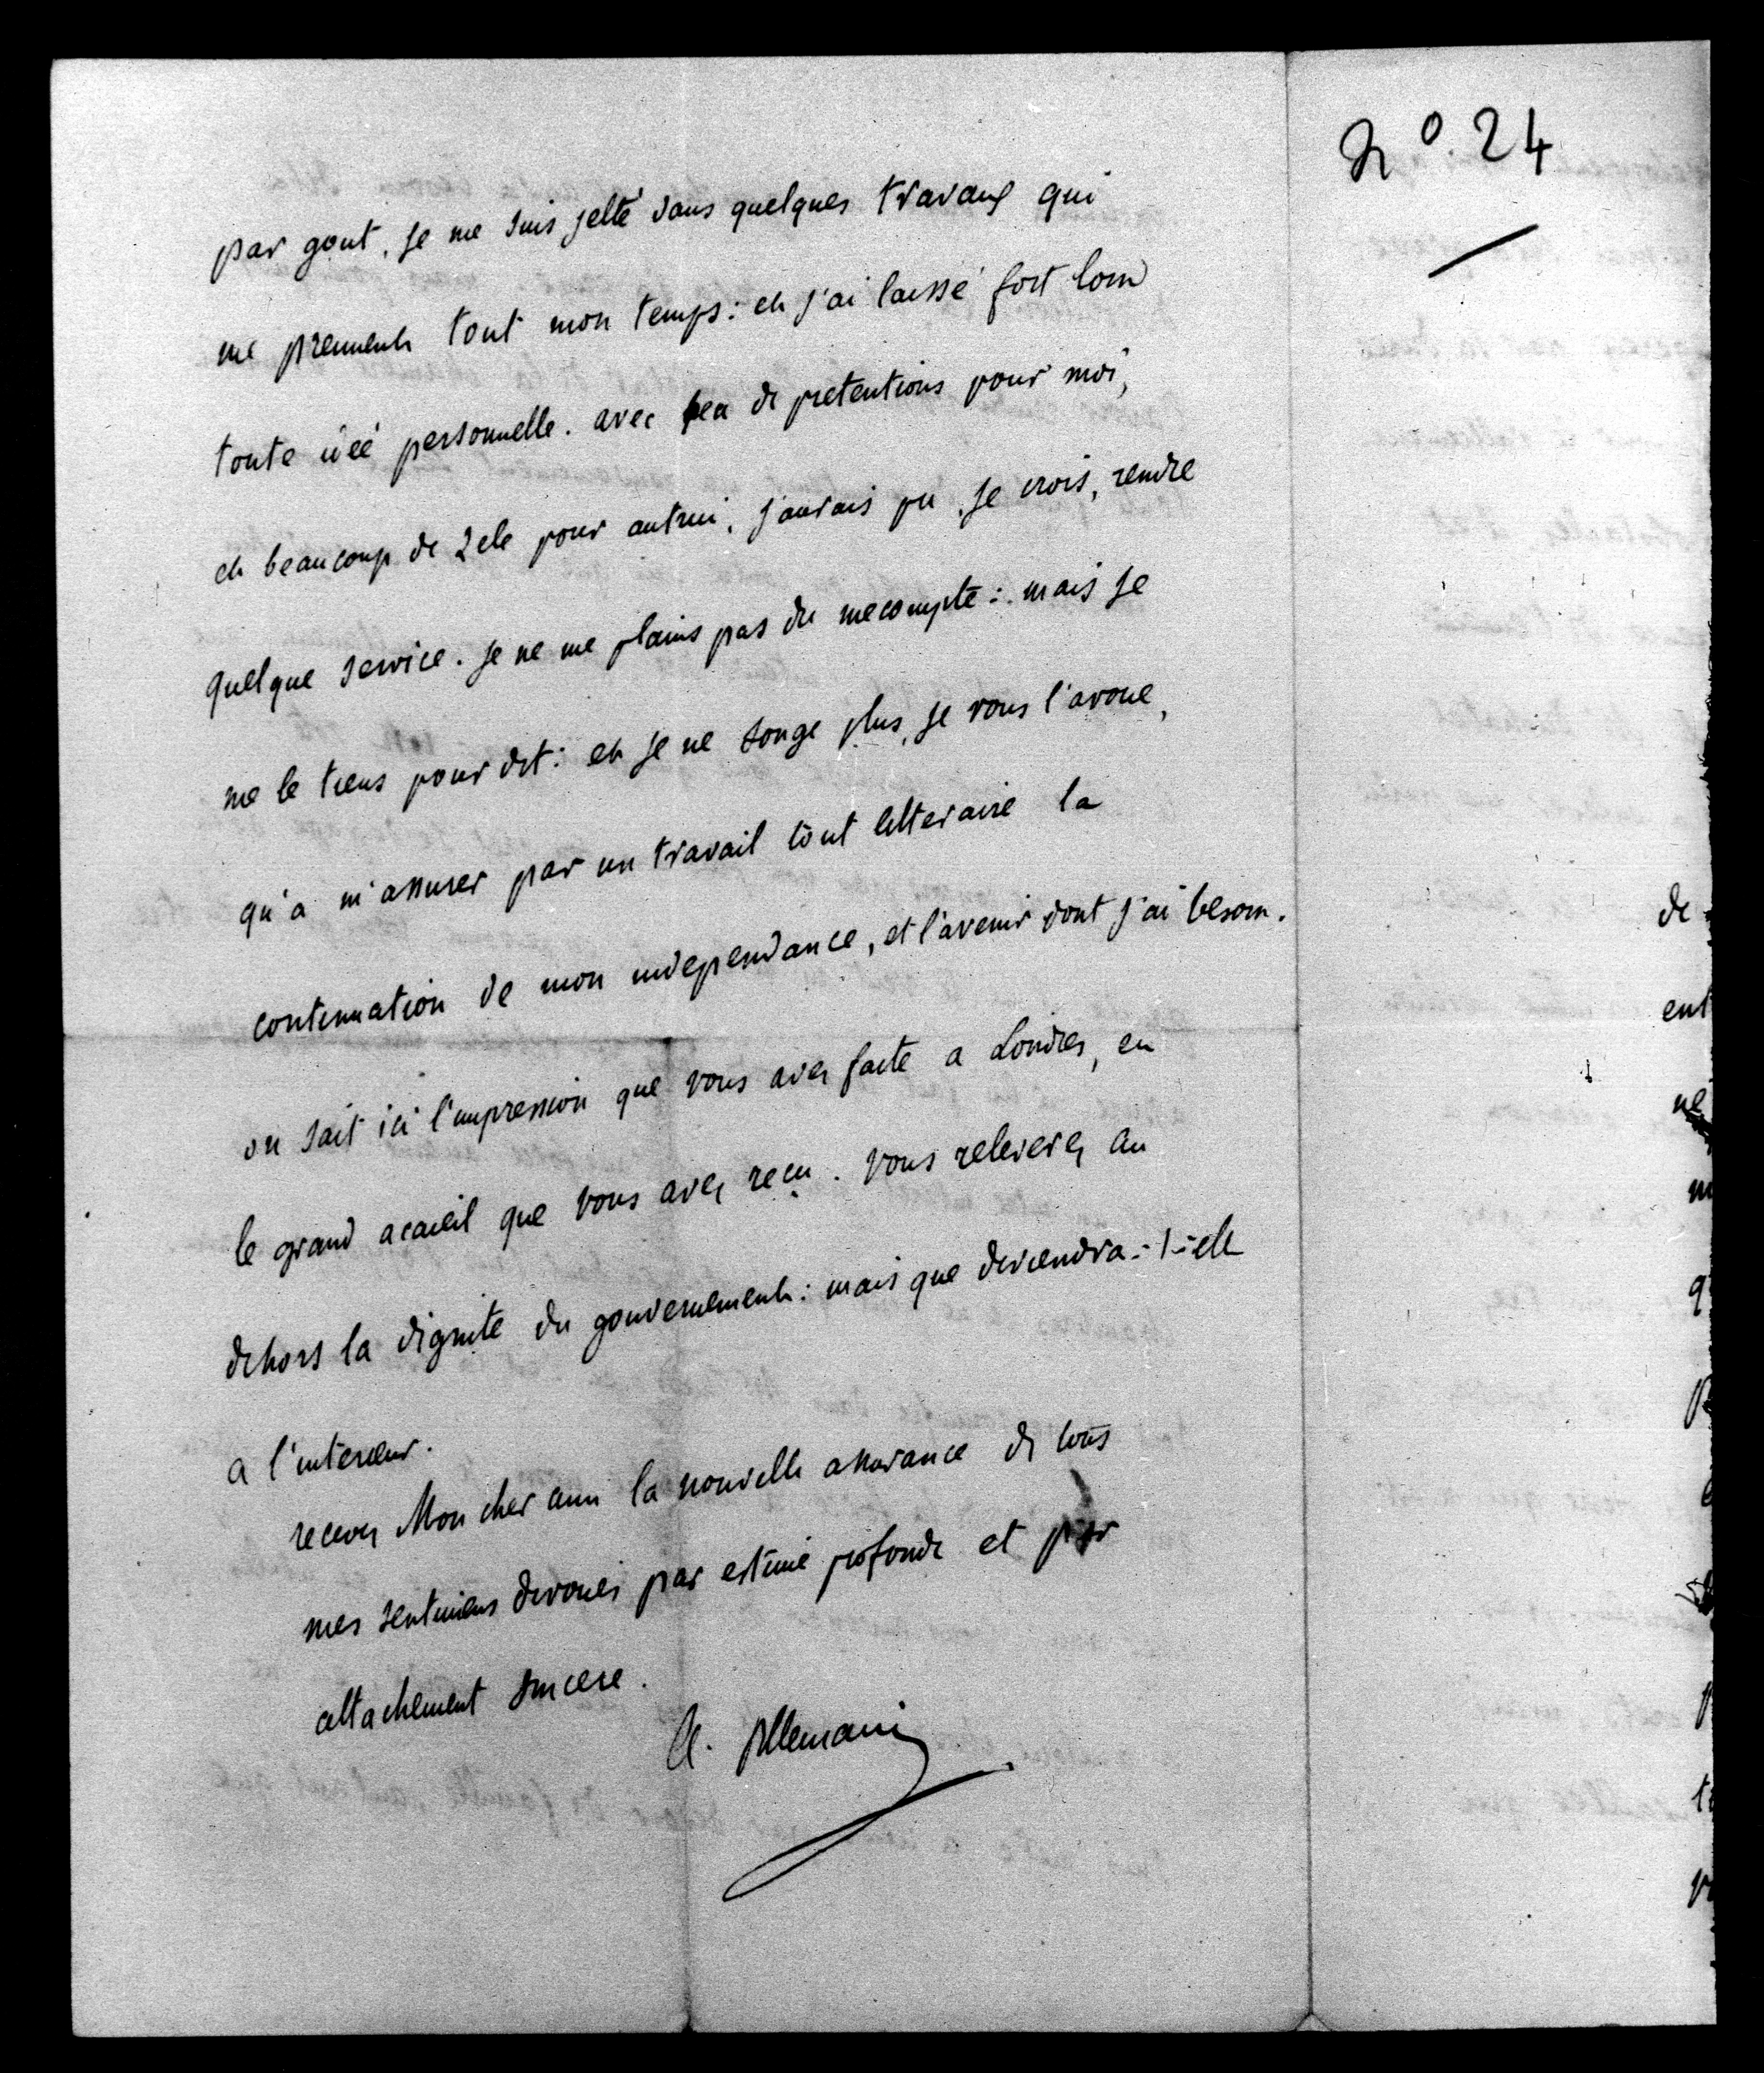 N° 24
par gout. je me suis jetté dans quelques travaux qui
me prennent tout mon temps : et j'ai laissé fort loin
toute idéé personnelle. avec peu de pretentions pour moi,
et beaucoup de zele pour autrui, j'aurais pu, je crois, rendre
quelque service. je ne me plains pas du mecompte : mais je
me le tiens pour dit : et je ne songe plus, je vous l'avoue,
qu'a m'assurer par un travail tout litteraire la
continuation de mon independance, et l'avenir dont j'ai besoin.
on sait ici l'impression que vous avez faite a Londres, en
le grand acceuil que vous avez reçu. vous releverez au
dehors la dignite du gouvernement : mais que deviendra-t-elle
a l'interieur.
recevez Mon cher ami la nouvelle assurance de tous
mes sentimens devoués par estime profonde et par
attachement sincere.
de
ent
ne